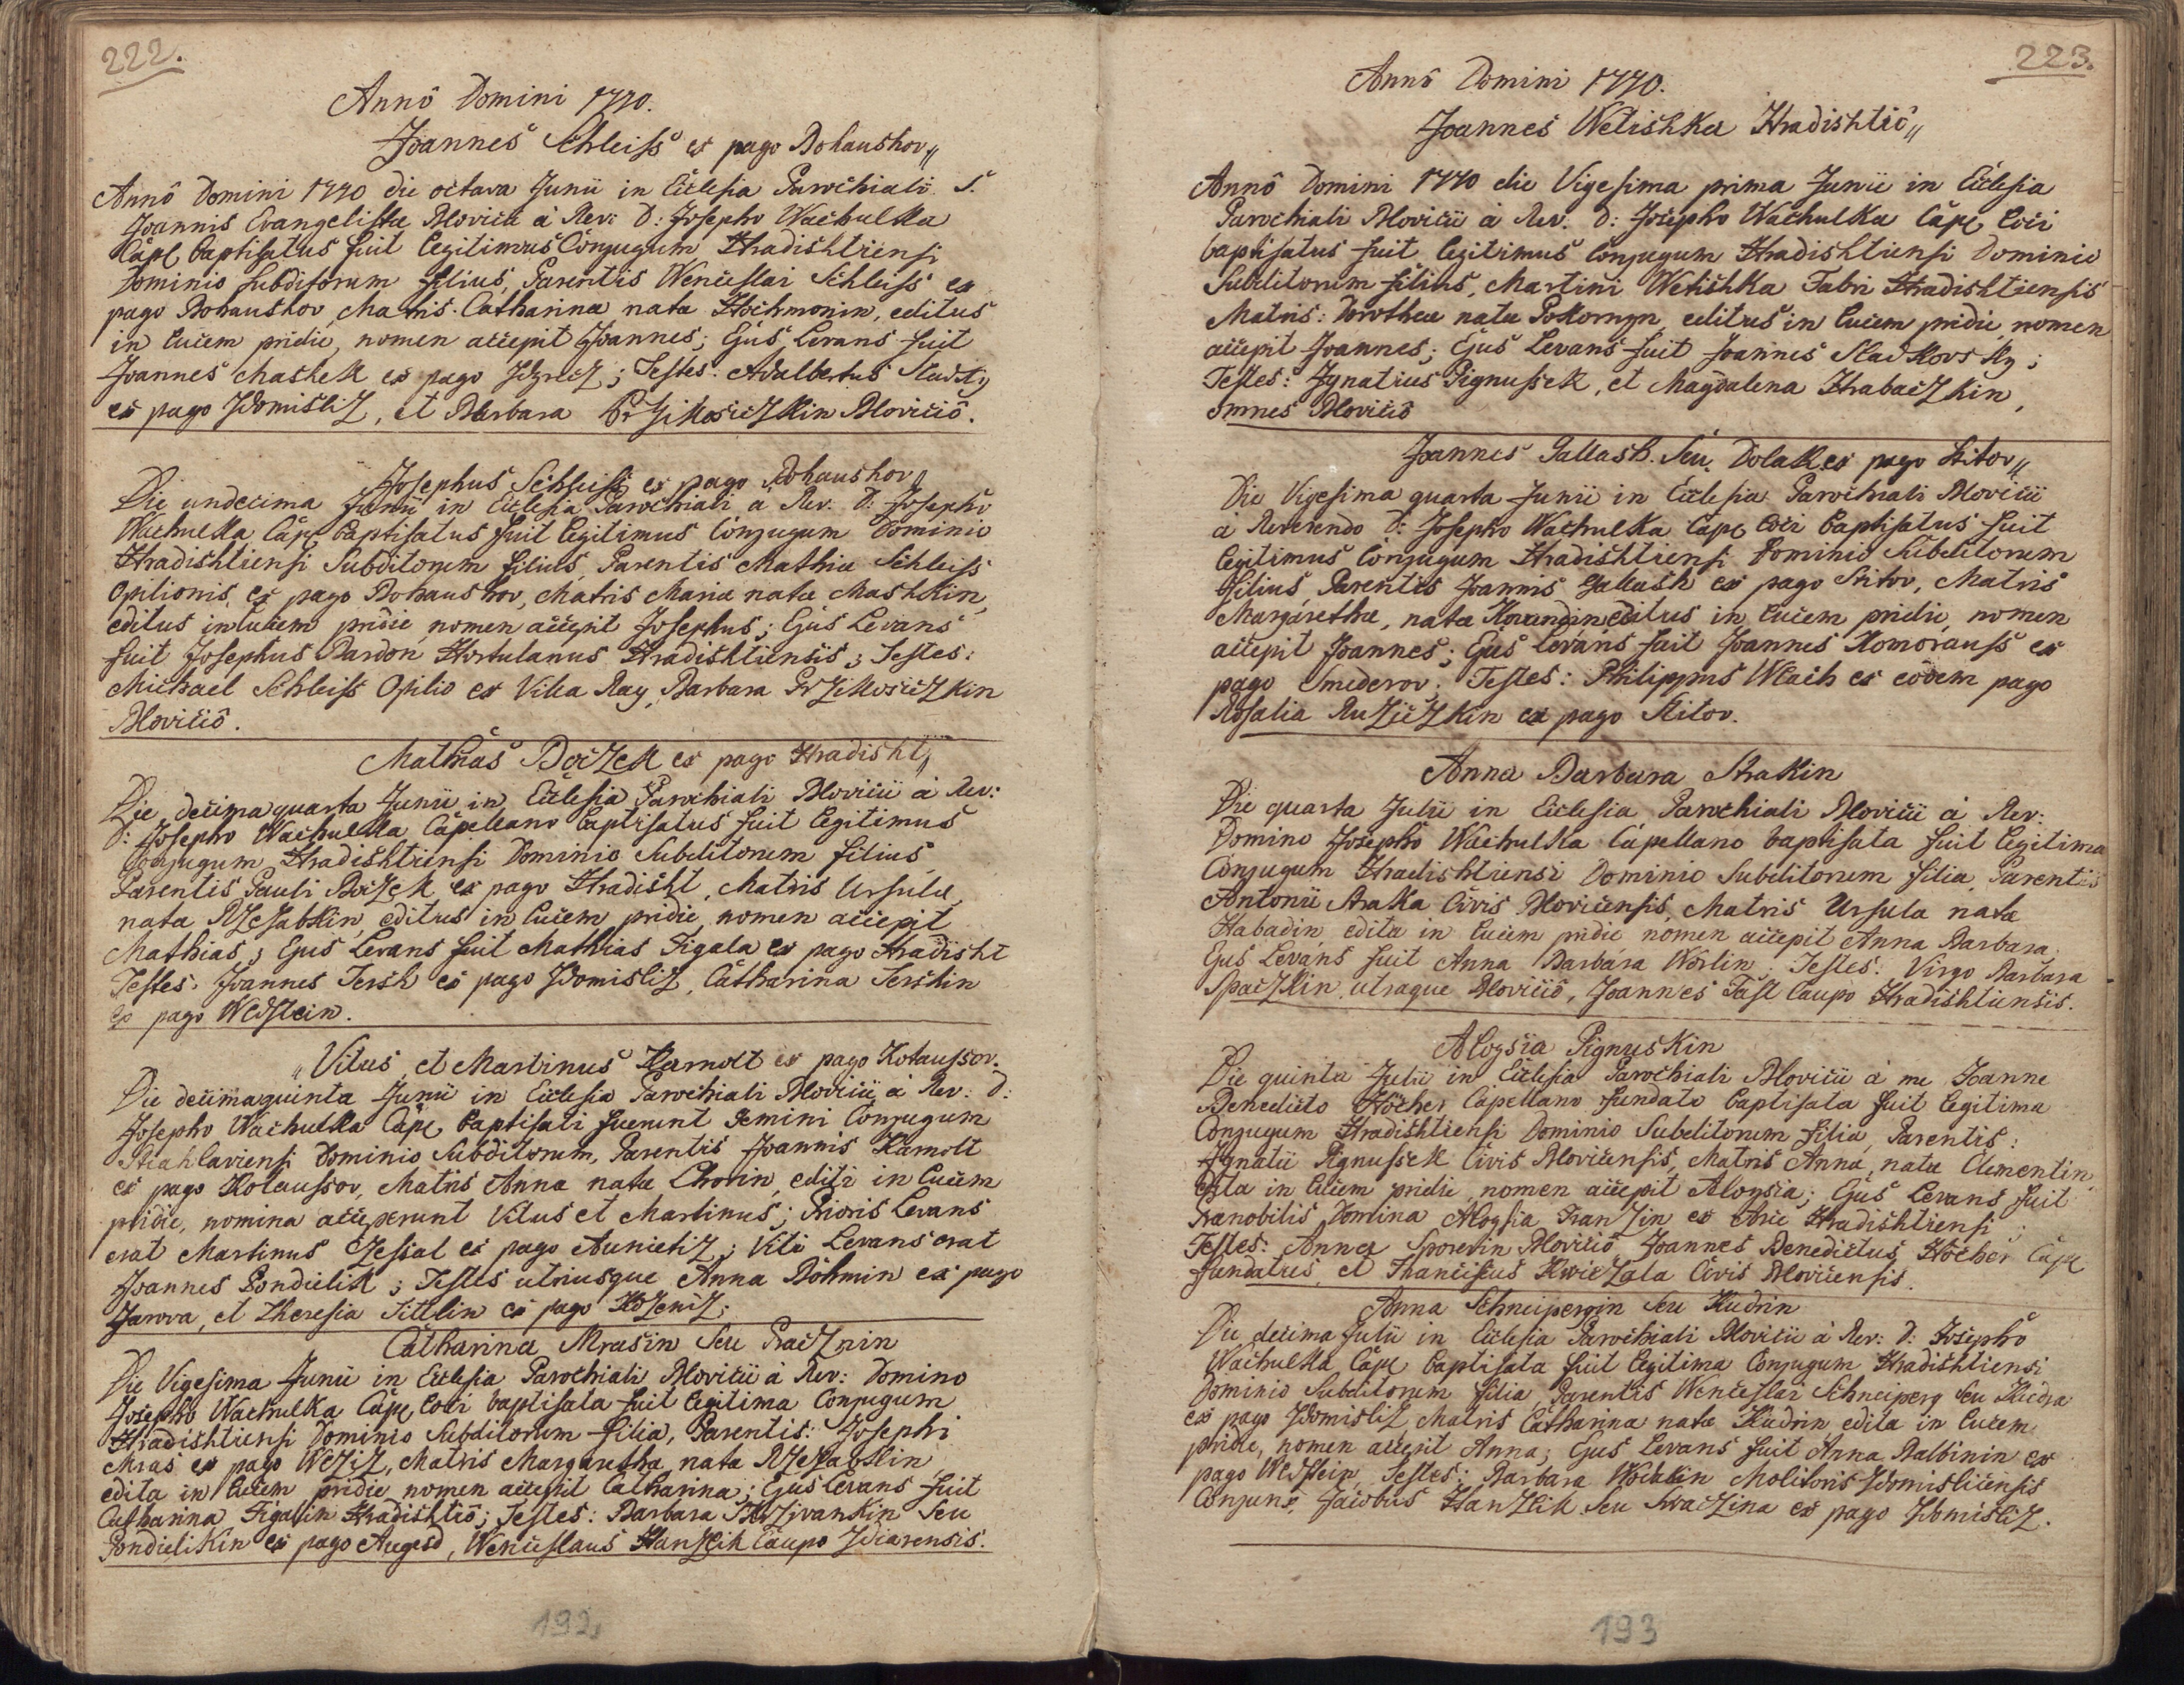 222.
Annô Domini 1770.
Joannes Schleiss ex pago Bohaushov,,
Annô Domini 1770 die octava Junii in Ecclesia Parochiali S.
Joannis Evangelistæ Blovicii à Rev: D: Josepho Wachulka
Capl baptisatus fuit legitimus Conjugum Hradishtiensi
Dominio Subditorum filius, Parentis Wenceslai Schleiss ex
pago Bohaushov, Matris Catharina nata Hochmonin, editus
in lucem pridie, nomen accepit Joannes; Ejus Levans fuit
Joannes Mashek ex pago; Testes: Adalbertus
ex pago Zdomisliz, et Barbara Przikosiczkin Bloviciô.
Josephus Schleiss ex pago Bohaushov,,
Die undecima Junii in Ecclesia Parochiali à Rev. D: Josepho
Wachulka Cap baptisatus fuit legitimus Conjugum Dominio
Hradishtiensi Subditorum filius, Parentis Mathiæ Schleiss
Opilionis ex pago Bohaushov, Matris Maria nata Mashkin,
editus in lucem pridie nomen accepit Josephus; Ejus Levans
fuit Josephus Bardon Hortulanus Hradishtiensis; Testes:
Michael Schleiss Opilio ex Villa Ray, Barbara Przikosiczkin
Bloviciô.
Mathias Boczek ex pago Hradisht,,
Die decima quarta Junii in Ecclesia Parochiali Blovicii à Rev:
D: Josepho Wachulka Capellano baptisatus fuit legitimus
Conjugum Hradishtiensi Dominio Subditorum filius,
Parentis Pauli Boczek ex pago Hradisht, Matris Ursula
nata Rzezabkin, editus in lucem pridie nomen accepit
Mathias; Ejus Levans fuit Mathias Figala ex pago Hradisht
Testes: Joannes Tersh ex pago Zdomisliz, Catharina Tershin
ex pago Wedstein.
,,Vitus et Martinus Karnolt ex pago Kotaussov.
Die decima quinta Junii in Ecclesia Parochiali Blovicii à Rev: D:
Josepho Wachulka Cap baptisati fuerunt Gemini Conjugum
Stiahlaviensi Dominio Subditorum, Parentis Joannis Karnolt
ex pago Kotaussov, Matris Anna nata Chorin, editi in lucem
pridie, nomina acceperunt Vitus et Martinus; Prioris Levans
erat Martinus Czessal ex pago Aunietiz; Viti Levans erat
Joannes Pondielik; Testes utriusque Anna Böhmin ex pago
Zarova, et Theresia Tittlin ex pago Kozeniz;
Catharina Mrasin Seu Pracznin
Die Vigesima Junii in Ecclesia Parochiali Blovicii à Rev: Domino
Josepho Wachulka Cap Loci baptisata fuit legitima Conjugum
Hradishtiensi Dominio Subditorum filia, Parentis: Josephi
Mras ex pago Wcziz, Matris Margaretha nata Rzezabkin
edita in lucem pridie nomen accepit Catharina; Ejus Levans fuit
Catharina Figalin Hradishtiô; Testes: Barbara Seu
Pondielikin ex pago Augezd, Wenceslaus Hanzlik Caupo Zdiarensis.
192
223.
Annô Domini 1770.
Joannes Wetishka Hradishtiô,,
Annô Domini 1770 die Vigesima prima Junii in Ecclesia
Parochiali Blovicii à Rev. D: Josepho Wachulka Cap Loci
baptisatus fuit legitimus Conjugum Hradishtiensi Dominio
Subditorum filius, Martini Wetishka Fabri Hradishtiensis
Matris: Dorothea nata Pokornyn editus in lucem pridie nomen
accepit Joannes; Ejus Levans fuit Joannes Sladkovsky;
Testes: Ignatius Pignussek, et Magdalena Hrabaczkin,
omnes Bloviciô
Joannes Gallash Seu Dolak ex pago Stitov,,
Die Vigesima quarta Junii in Ecclesia Parochiali Blovicii
à Reverendo D: Josepho Wachulka Cap Loci baptisatus fuit
legitimus Conjugum Hradishtiensi Dominio Subditorum
filius, Parentis Joannis Gallash ex pago Stitov, Matris
Margaretha, nata Korandin editus in lucem pridie, nomen
accepit Joannes; Ejus Levans fuit Joannes Komorauss ex
pago Smederov; Testes: Philippus Wlach ex eôdem pago
Rosalia Ruziczkin ex pago Stitov.
Anna Barbara Strakin
Die quarta Julii in Ecclesia Parochiali Blovicii à Rev:
Domino Josepho Wachulka Capellano baptisata fuit legitima
Conjugum Hradishtiensi Dominio Subditorum filia, Parentis
Antonii Straka Civis Bloviciensis, Matris Ursula nata
Habadin edita in lucem pridie nomen accepit Anna Barbara
Ejus Levans fuit Anna Barbara Worlin; Testes: Virgo Barbara
Spaczkin, utraque Bloviciô, Joannes Fast Caupo Hradishtiensis.
Aloysia Pignuskin
Die quinta Julii in Ecclesia Parochiali Blovicii à me Joanne
Benedicto Höcher Capellano fundato baptisata fuit legitima
Conjugum Hradishtiensi Dominio Subditorum filia, Parentis:
Ignatii Pignussek Civis Bloviciensis, Matris Anna, nata Clementin
edita in lucem pridie, nomen accepit Aloysia; Ejus Levans fuit
Prænobilis Domina Aloysia Franzin ex Arce Hradishtiensi;
Testes: Anna Sporerin Bloviciô, Joannes Benedictus Höcher Cap
fundatus, et Franciscus Kwiczala Civis Bloviciensis.
Anna Schneipergin Seu Kudrin
Die decima Julii in Ecclesia Parochiali Blovicii à Rev: D: Josepho
Wachulka Cap baptisata fuit legitima Conjugum Hradishtiensi
Dominio Subditorum filia, Parentis Wenceslai Schneiperg Seu Kudra
ex pago Zdomisliz, Matris Catharina nata Kudrin, edita in lucem
pridie, nomen accepit Anna; Ejus Levans fuit Anna Balbinin ex
pago Wedstein, Testes: Barbara Molitoris Zdomisliciensis
Conjunx, Jacobus Hanzlik Seu Swaczina ex pago Zdomisliz.
193